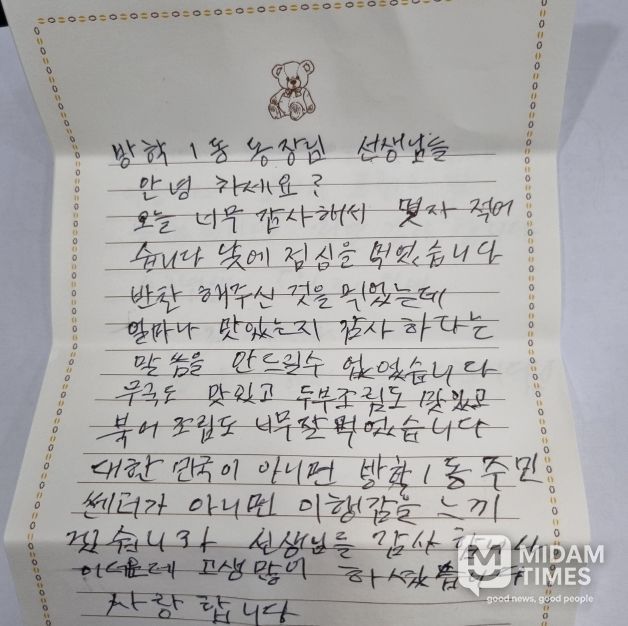 방학 1동 동장님 선생님들
안녕 하세요?
오늘 너무 감사해서 몇자 적어
습니다 낮에 점심을 먹었습니다
반찬 해주신 것을 먹었는데
얼마나 맛있는지 감사 하다는
말씀을 안드릴수 없었습니다
무국도 맛있고 두부조림도 맛있고
북어 조림도 너무잘 먹었습니다
대한 민국이 아니면 방학1동 주민
쎈터가 아니면 이행감을 느끼
선생님들 감사
고생많이 하셨습니다
사랑 합니다
MIDAM
TIMES
good news, good people